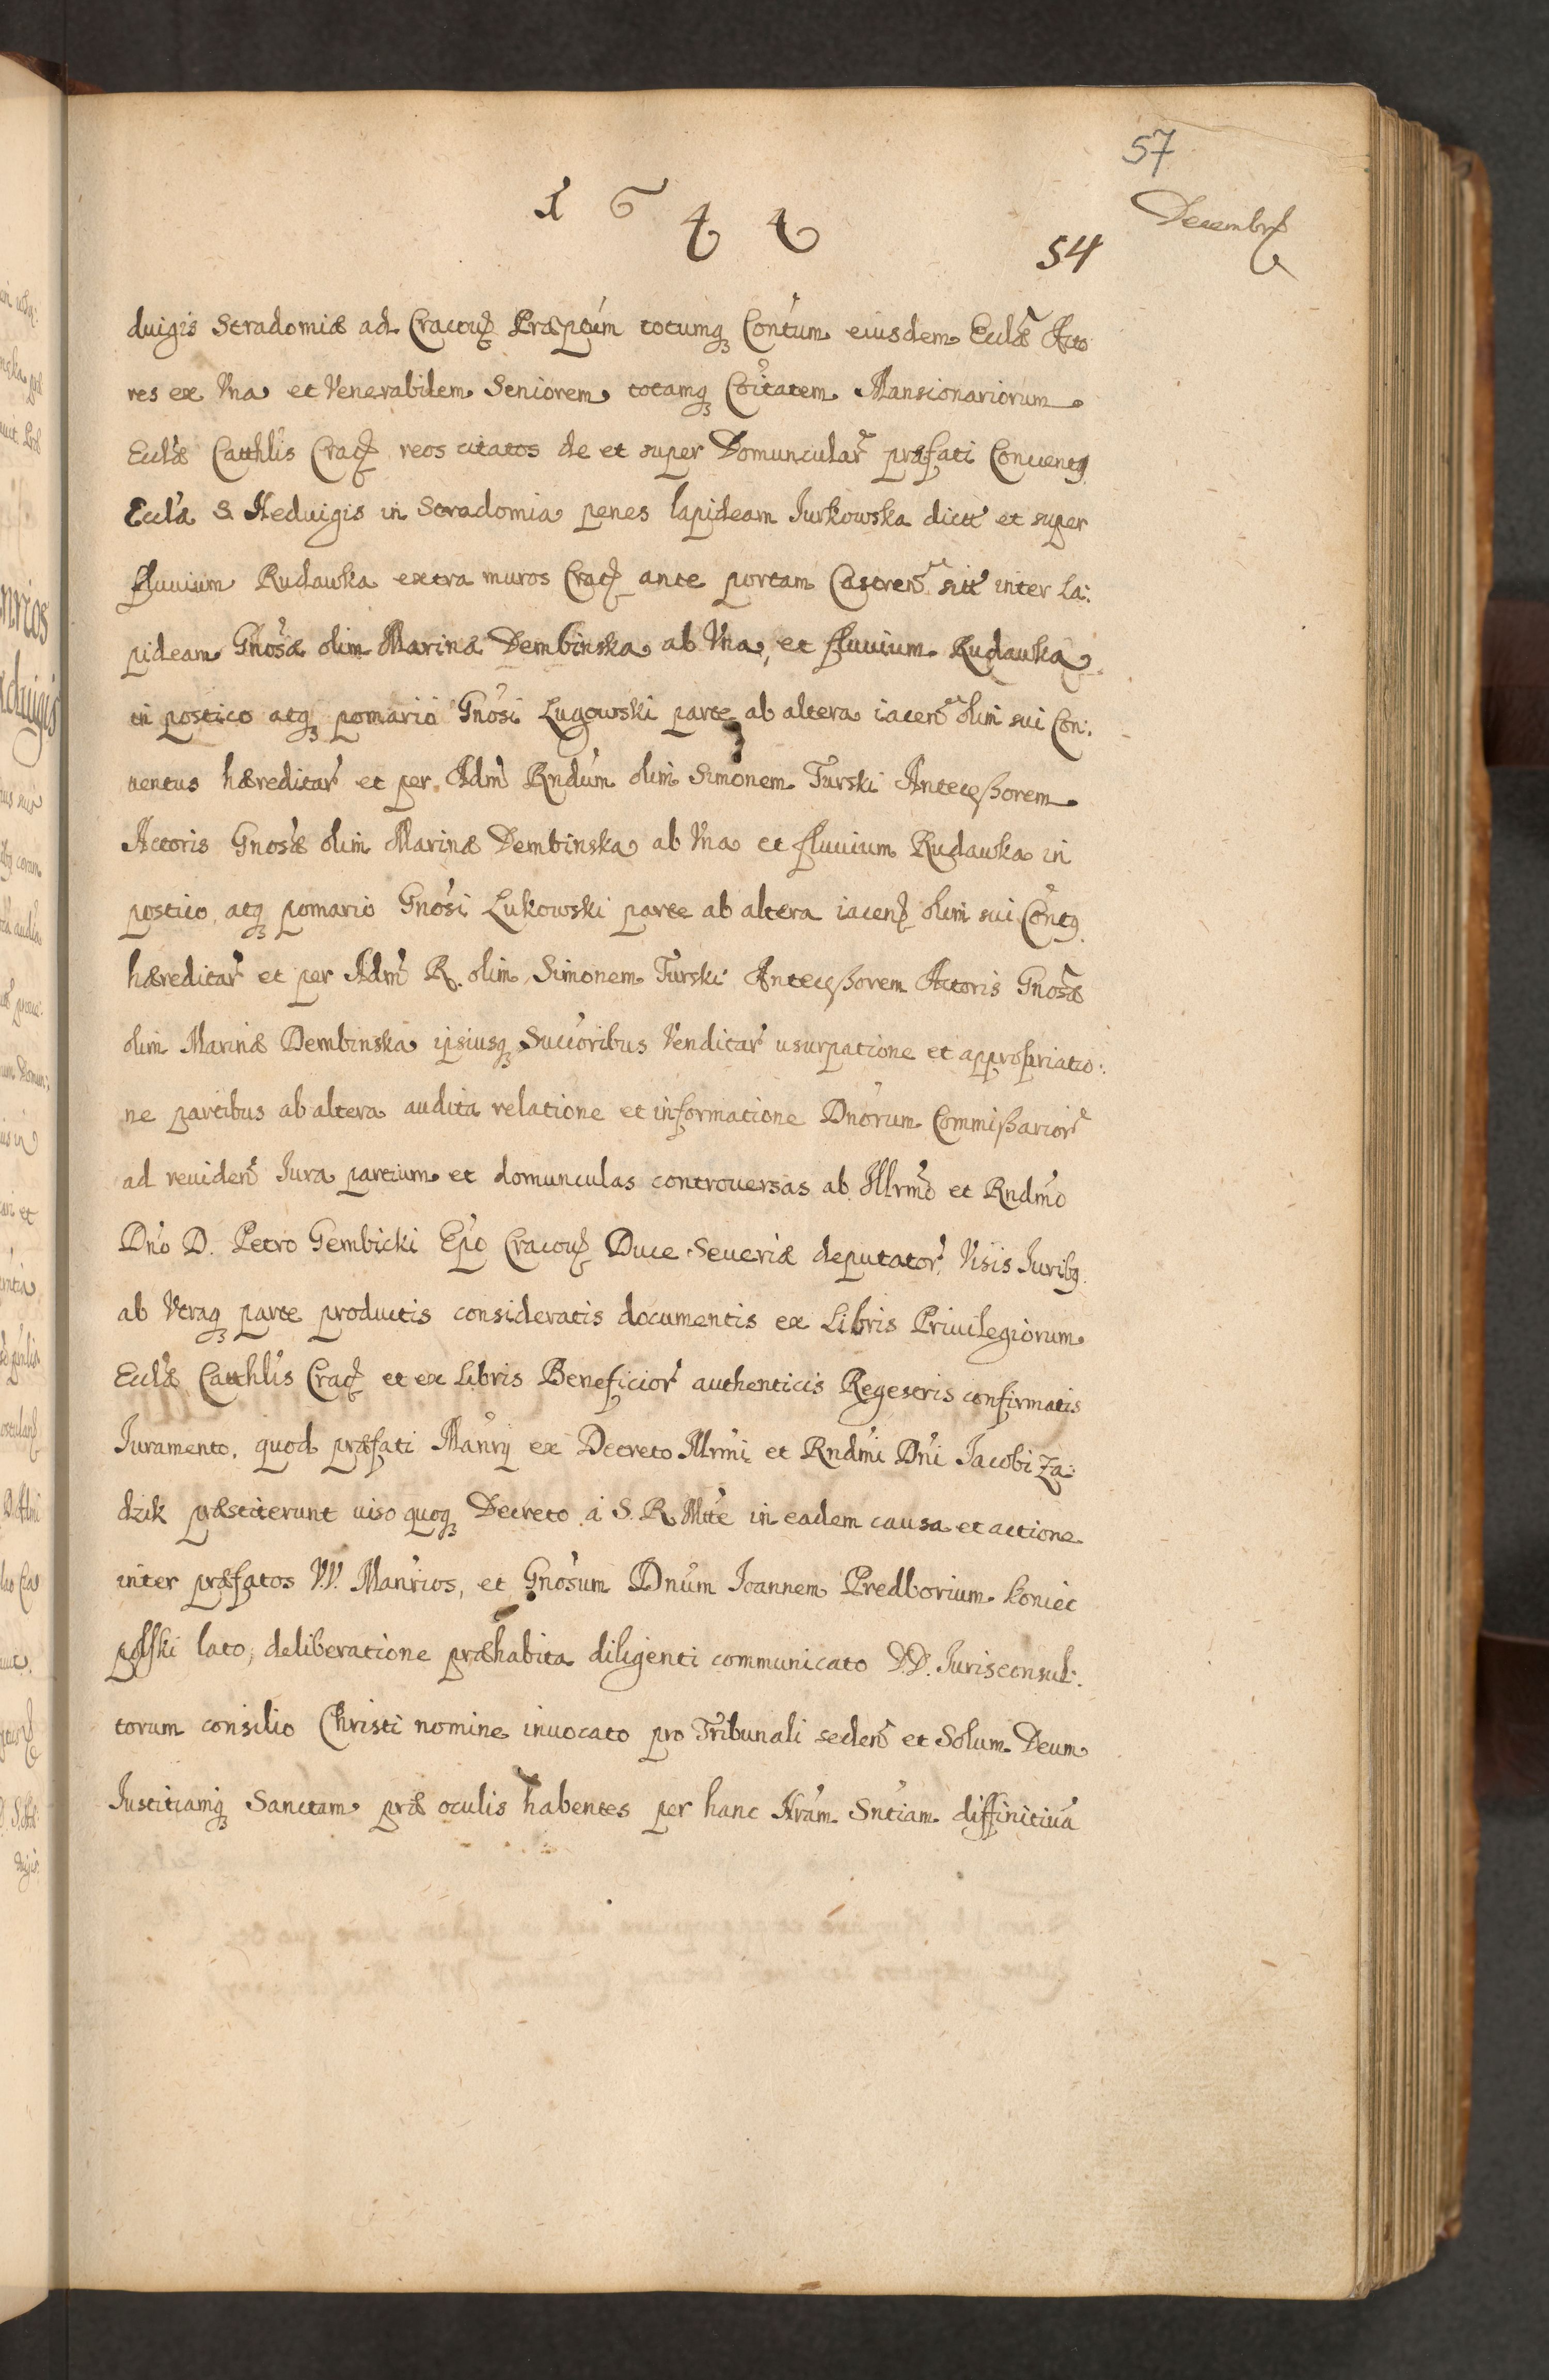 57
1644
Decembr
54
duigis Stradomiæ ad Cracou Præptum totumq Contum eiusdem Eccl̃æ Acto
res ex Vna et Venerabilem Seniorem totamq Coitatem Mansionariorum
Ecclæ Catthlis Crac reos citatos de et super Domuncular præfati Conuentq
Eccla S. Heduigis in Stradomia penes lapideam Jurkowska dict et super
fluuium Rudawka extra muros Crac ante portam Castren sitt inter la:
pideam Gnosæ olim Marinæ Dembinska ab Vna, et fluuium Rudawka
in postico atq pomario Gnosi Lugowski parte ab altera iacen olim sui Con:
uentus hæreditar et per Adm Rndum olim Simonem Turski Anteceßorem
Actoris Gnosæ olim Marinæ Dembinska ab Vna et fluuium Rudawka in
postico atq pomario Gnosi Lukowski parte ab altera iacen olim sui Contq
hæreditar et per Adm R. olim Simonem Turski Anteceßorem Actoris Gnosæ
olim Marinæ Dembinska ipsiusq Succoribus Venditar usurpatione et appropriatio:
ne partibus ab altera audita relatione et informatione Dnorum Commißarior
ad reuiden Jura partium et domunculas controuersas ab Illrmo et Rndmo
Dno D. Petro Gembicki Epo Cracou Duce Seueriæ deputator, Visis Juribq
ab Vtraq parte productis consideratis documentis ex Libris Priuilegiorum
Ecclæ Catthlis Crac et ex Libris Beneficior authenticis Regestris confirmatis
Juramento, quod præfati Manrÿ ex Decreto Illrmi et Rndmi Dni Jacobi Za:
dzik præstiterunt uiso quoq Decreto a S. R. Mtte in eadem causa et actione
inter præfatos V.V. Manrios, et Gnosum Dnum Joannem Predborium Koniec
polski lato, deliberatione præhabita diligenti communicato D.D. Jurisconsul:
torum consilio Christi nomine inuocato pro Tribunali seden et Solum Deum
Justitiamq Sanctam præ oculis habentes per hanc Nram Sntiam diffinitiua